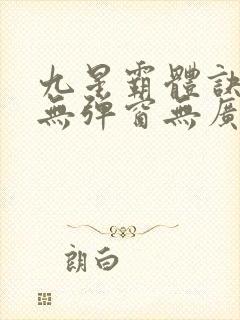 九星霸體訣
無彈窗無廣
朗白